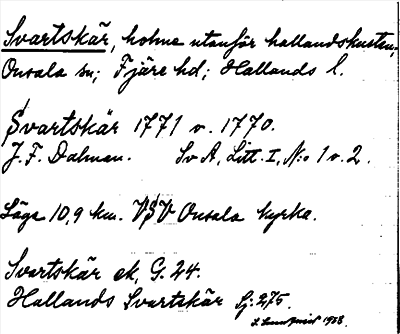 Svartskär, holme utanför hallandskusten;
Onsala sn; Fjäre hd; Hallands l.
Svartskär 1771 v. 1770.
J. F. Dalman. Sv A, Litt. I, N:o 1 v. 2.
Läge 10,9 km. VSV Onsala kyrka.
Svartskär ek. G. 24.
Hallands Svartskär Sj: 275.
1938.